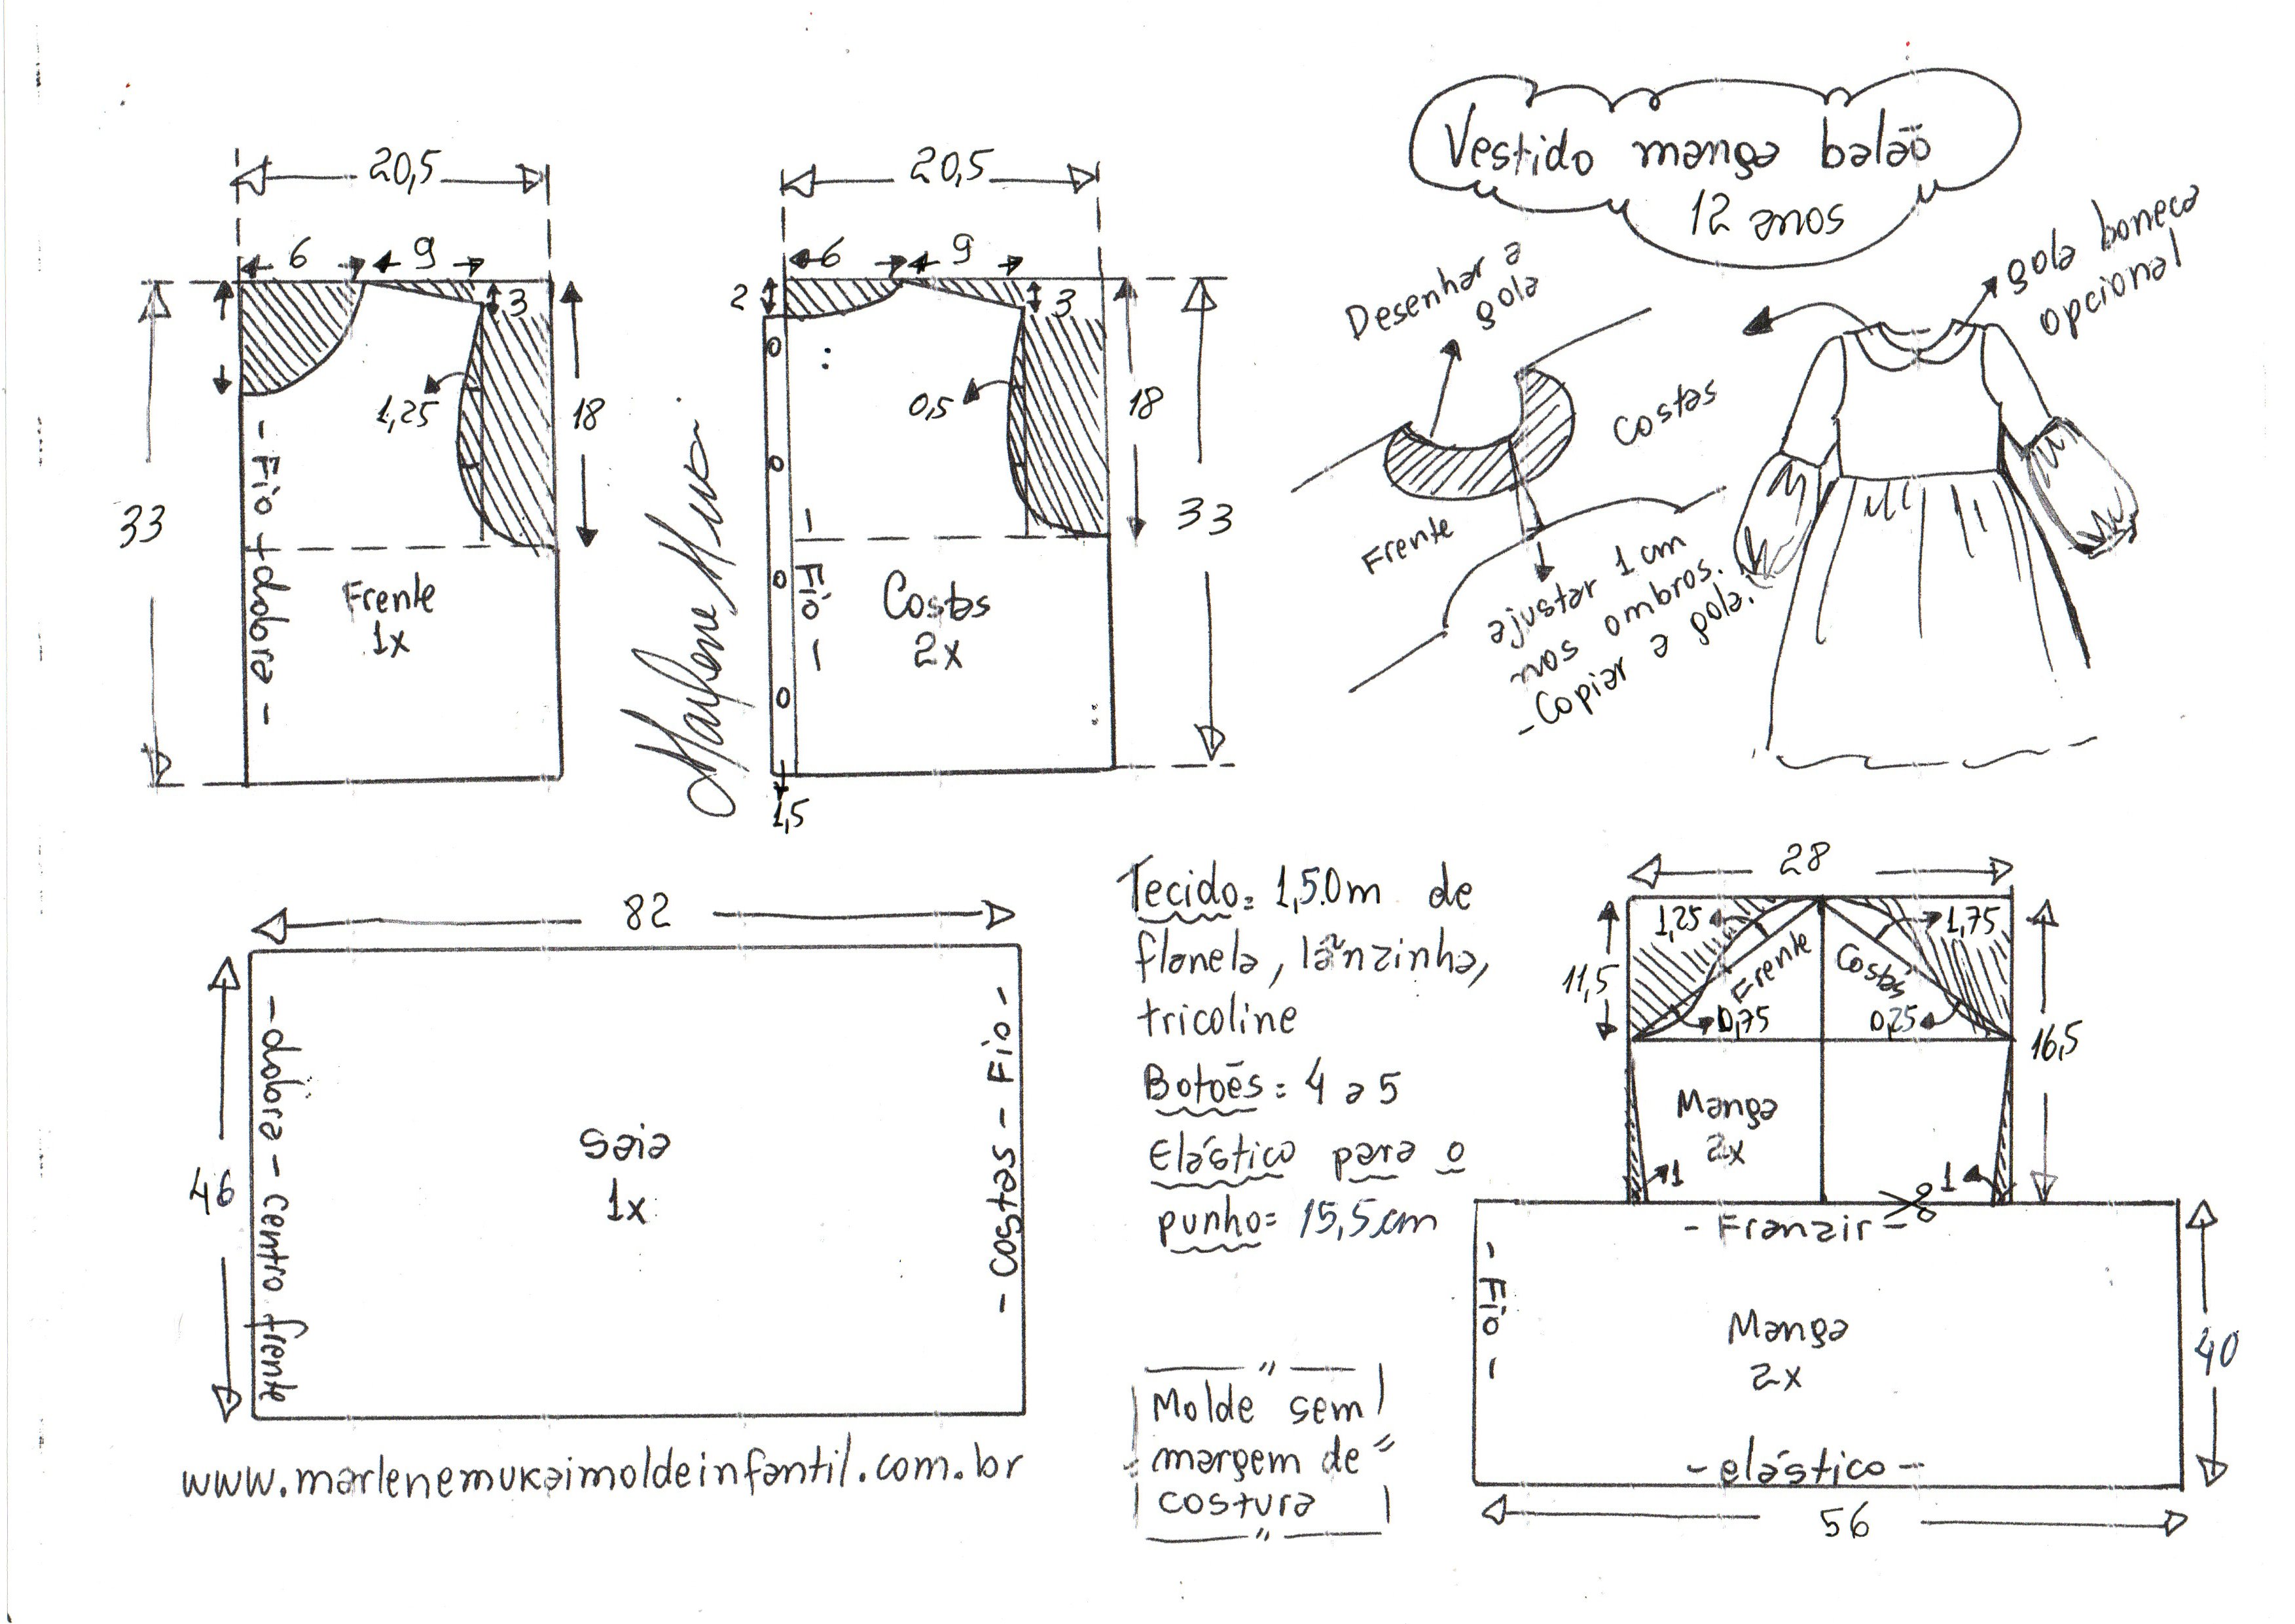 Vestido manga balão
12 anos
20,5
6
9
3
1,25
18
33
- Fio + dobra -
Frente
1x
20,5
6
9
2
3
0,5
18
33
- Fio -
Costas
2x
1,5
Marlene Mukai
Desenhar a
gola
Costas
Frente
ajustar 1 cm
nos ombros.
- Copiar a gola.
gola boneca
opcional
82
46
- dobra - centro frente
Saia
1x
- Costas - Fio -
www.marlenemukaimoldeinfantil.com.br
Tecido= 1,50m de
flanela, lãnzinha,
tricoline
Botões= 4 a 5
Elástico para o
punho= 15,5cm
Molde sem
margem de
costura
28
1,25
1,75
11,5
Frente
Costas
0,75
0,25
16,5
Manga
2x
1
1
- Franzir -
- Fio -
Manga
2x
40
- elástico -
56